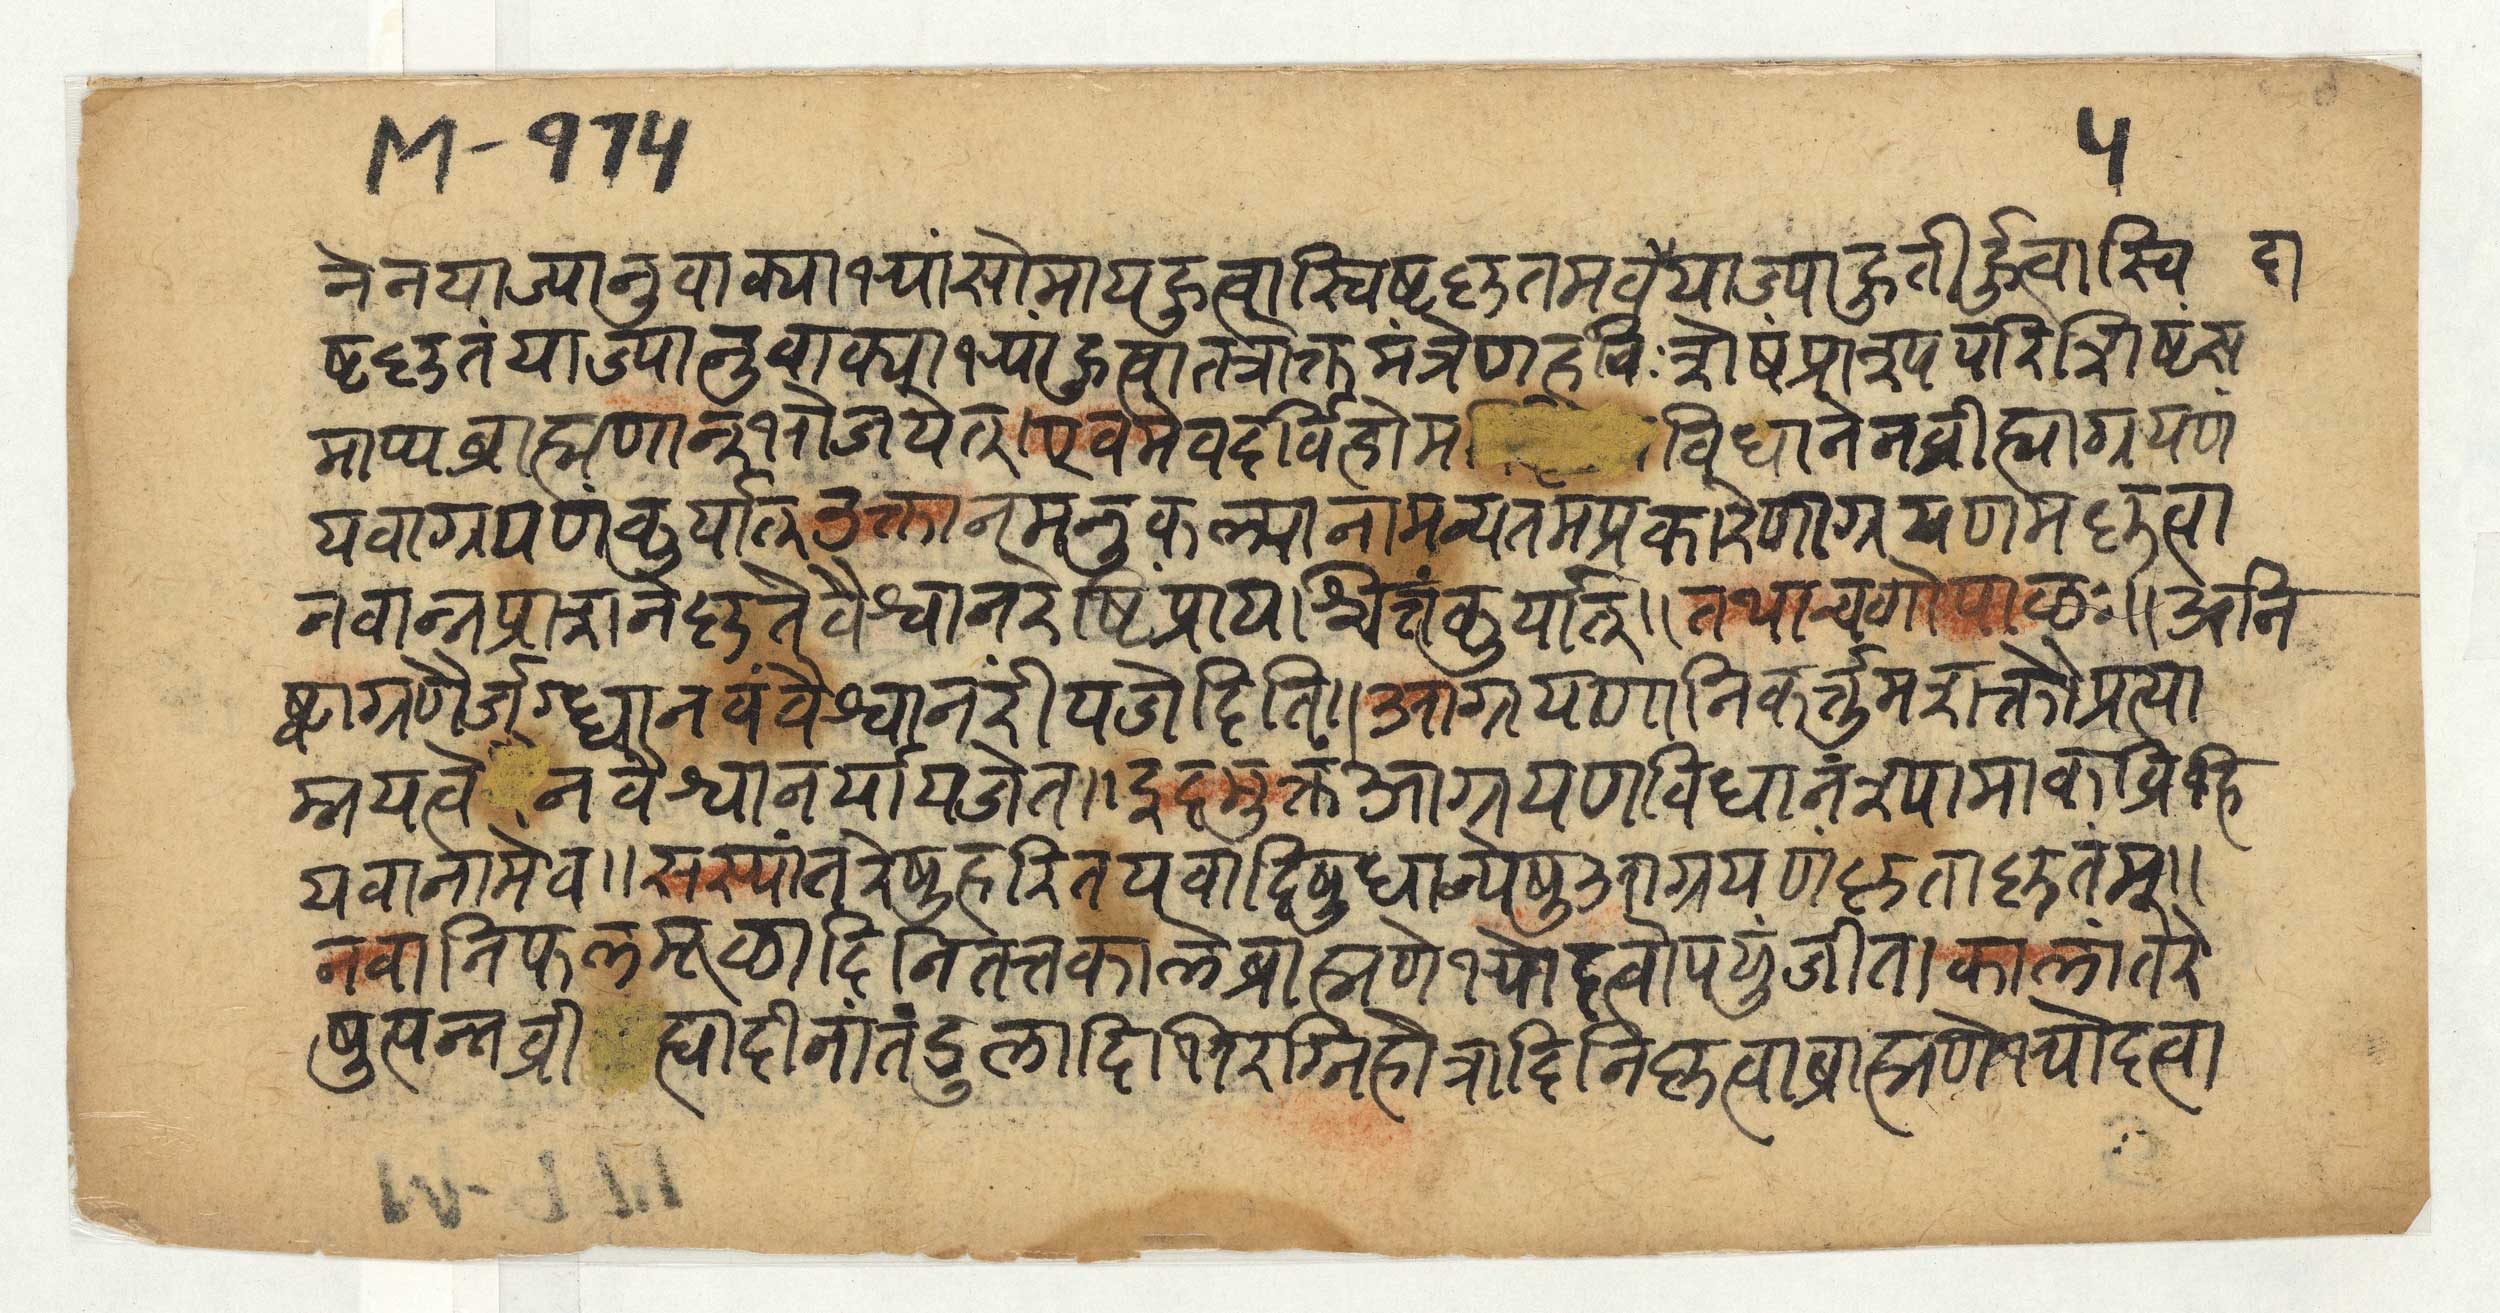 M-१७५ ५
नेनयाज्यानुवाक्याभ्यांसोमायहुत्वास्विष्टकृतमवैयाज्याहुतीर्हुत्वास्वि दा
ष्टकृतंयाज्यानुवाक्याभ्यांहुत्वातत्रोक्तमंत्रेणहविःशेषंप्राश्यपरिशिष्टंस
माप्यब्राह्मणान्भोजयेत्।एवमेवदर्विहोम विधानेनव्रीह्याग्रयणं
यवाग्रयणंकुर्यात्उक्तानमनुकल्पानामन्यतमप्रकारेणाग्रयणमकृत्वा
नवान्नप्राशनेकृतेवैश्वानरेष्टिंप्रायश्चित्तंकुर्यात्॥तथाचगोपाळः॥अनि
ष्ट्वाग्रणैर्जग्ध्वानवंवैश्वानरींयजेदिति॥आग्रयणानिकर्त्तुमशक्तौप्रत्या
म्नयत्वे नवैश्वानर्यायजेत॥इदमुक्तंआग्रयणविधानंश्यामाकव्रिहि
यवानामेव॥सस्यांतरेषुहरितयवादिषुधान्येषुआग्रयणंकृताकृतंम्॥
नवानिफलमूळादिनितत्तकालेब्राह्मणेभ्योदत्वोपयुंजीत।कालांतरे
षुत्पन्नव्री ह्यादीनांतंडुलादिभिरग्निहोत्रादिनिकृत्वाब्राह्मणेभ्योदत्वा